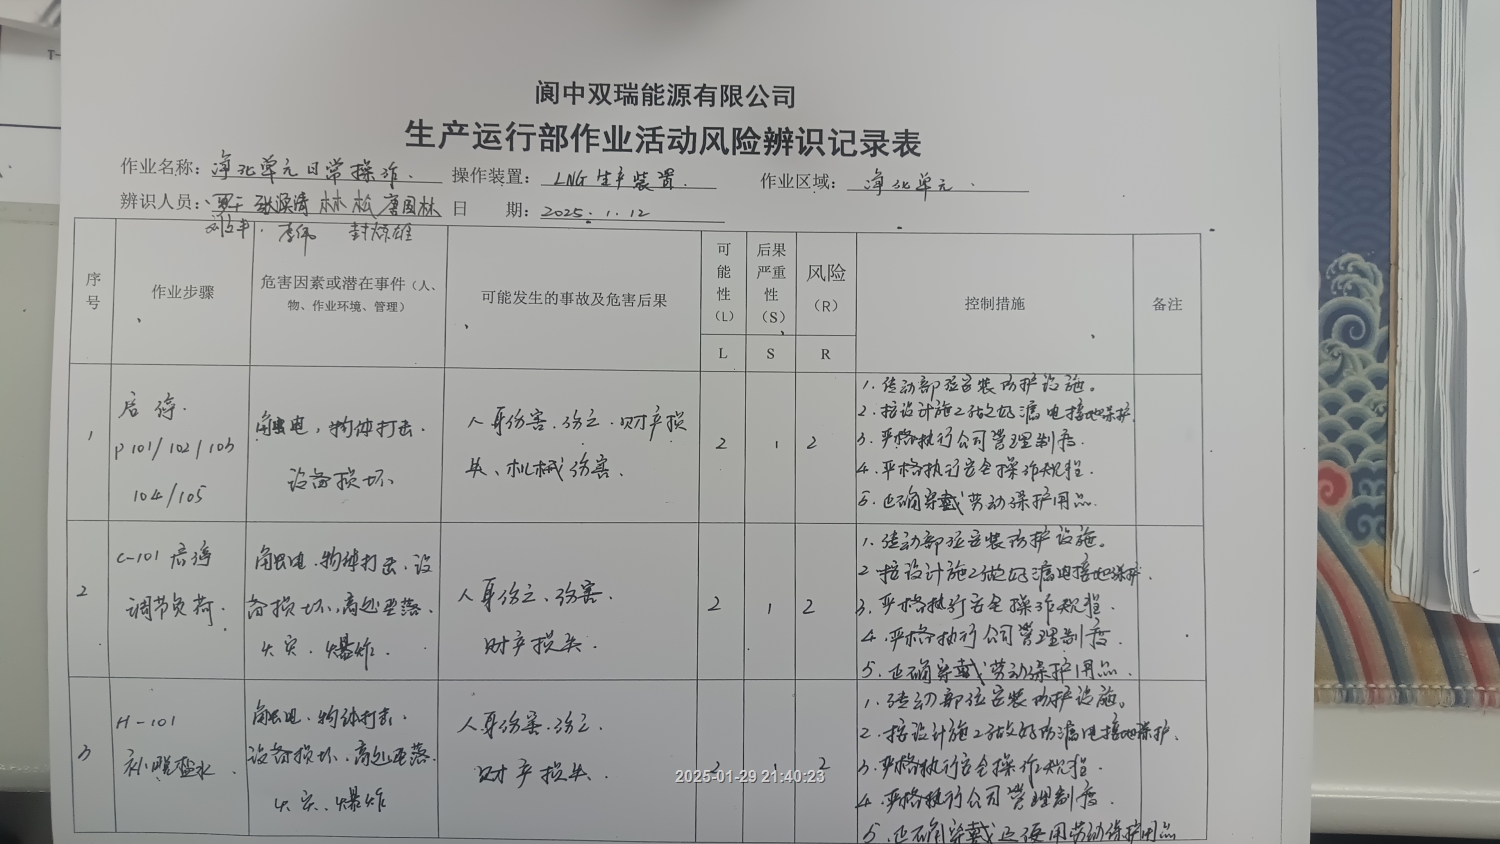 阆中双瑞能源有限公司
生产运行部作业活动风险辨识记录表
作业名称：净化单元日常操作. 操作装置：LNG生产装置. 作业区域：净化单元.
辨识人员： 林松 唐国林 日 期：2025.1.12
李伟
序号
作业步骤
危害因素或潜在事件（人、
物、作业环境、管理）
可能发生的事故及危害后果
可能性（L）
后果严重性（S）
风险（R）
控制措施
备注
L S R
1
启停.
P101/102/103
104/105
触电，物体打击.
设备损坏
人身伤害.伤亡.财产损
失、机械伤害.
2 1 2
1.传动部位安装防护设施。
2.按设计施工做好漏电接地保护.
3.严格执行公司管理制度.
4.严格执行安全操作规程.
5.正确穿戴劳动保护用品.
2
C-101启停
调节负荷.
触电.物体打击.设
备损坏、高处坠落.
火灾、爆炸.
人身伤亡、伤害.
财产损失.
2 1 2
1.传动部位安装防护设施。
2 按设计施工做好漏电接地保护.
3.严格执行安全操作规程.
4.严格执行公司管理制度.
5.正确穿戴劳动保护用品.
3
H-101
补脱盐水.
触电.物体打击.
设备损坏.高处坠落.
火灾、爆炸
人身伤害.伤亡.
财产损失.
2 1 2
1.传动部位安装防护设施。
2.按设计施工做好防漏电接地保护.
3.严格执行安全操作规程.
4.严格执行公司管理制度.
5.正确穿戴正使用劳动保护用品
2025-01-29 21:40:23